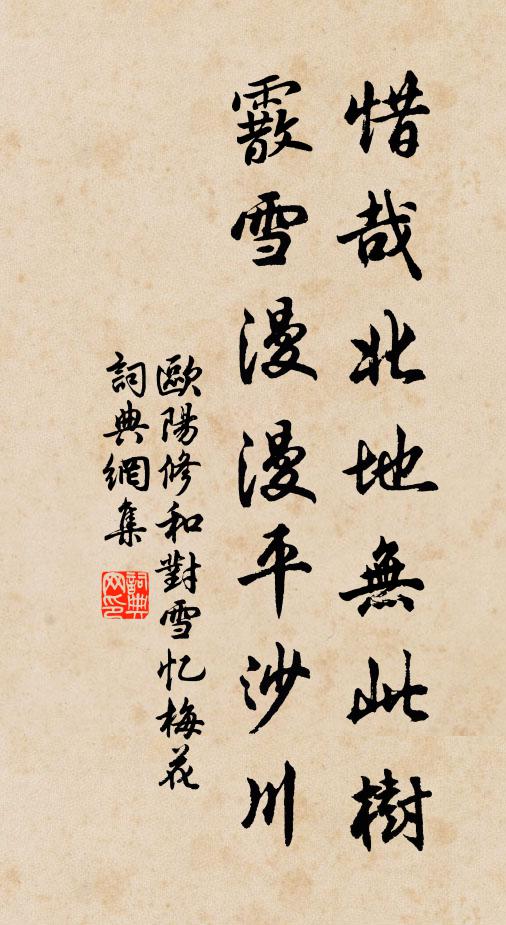 惜哉北地無此樹
霰雪漫漫平沙川
歐陽修和對雪忆梅花
詞典網集
詞典网印